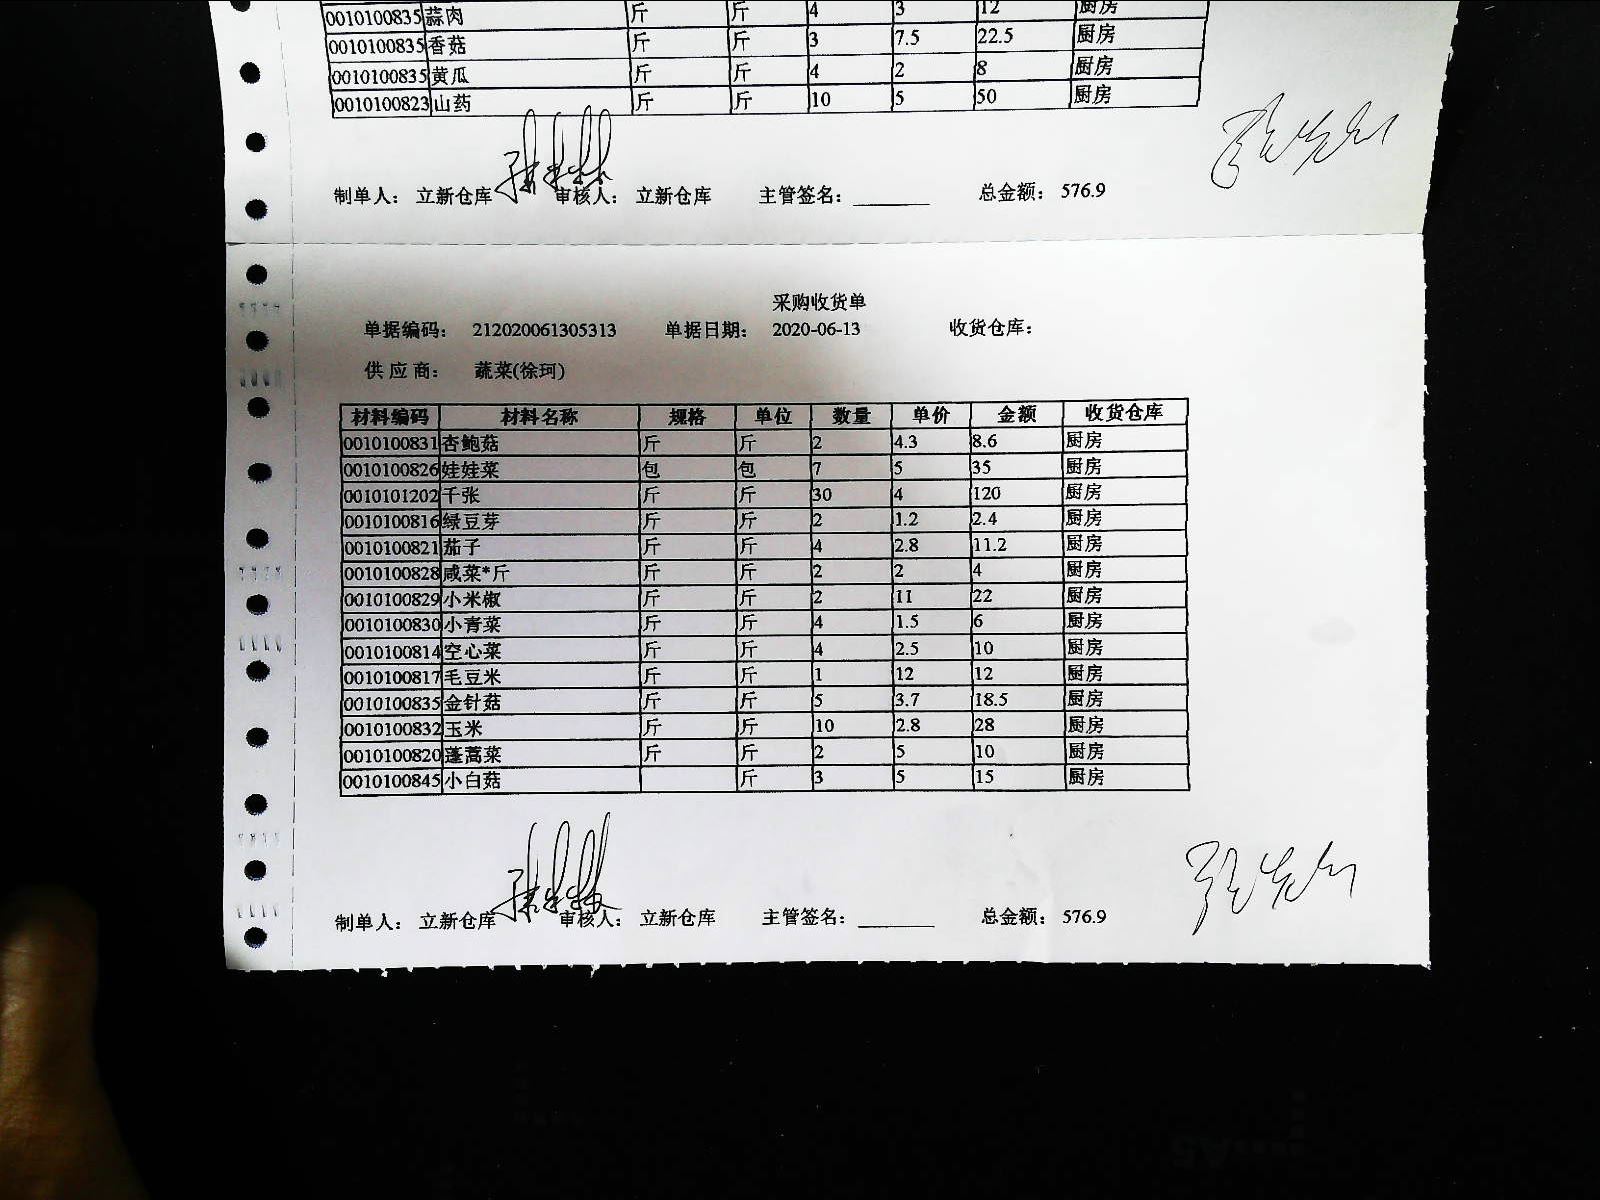 0010100835 蒜肉 斤 斤 4 3 12 厨房
0010100835 香菇 斤 斤 3 7.5 22.5 厨房
0010100835 黄瓜 斤 斤 4 2 8 厨房
0010100823 山药 斤 斤 10 5 50 厨房
制单人: 立新仓库 审核人: 立新仓库 主管签名: 总金额: 576.9
采购收货单
单据编码: 212020061305313 单据日期: 2020-06-13 收货仓库:
供应商: 蔬菜(徐珂)
材料编码 材料名称 规格 单位 数量 单价 金额 收货仓库
0010100831 杏鲍菇 斤 斤 2 4.3 8.6 厨房
0010100826 娃娃菜 包 包 7 5 35 厨房
0010101202 千张 斤 斤 30 4 120 厨房
0010100816 绿豆芽 斤 斤 2 1.2 2.4 厨房
0010100821 茄子 斤 斤 4 2.8 11.2 厨房
0010100828 咸菜*斤 斤 斤 2 2 4 厨房
0010100829 小米椒 斤 斤 2 11 22 厨房
0010100830 小青菜 斤 斤 4 1.5 6 厨房
0010100814 空心菜 斤 斤 4 2.5 10 厨房
0010100817 毛豆米 斤 斤 1 12 12 厨房
0010100835 金针菇 斤 斤 5 3.7 18.5 厨房
0010100832 玉米 斤 斤 10 2.8 28 厨房
0010100820 蓬蒿菜 斤 斤 2 5 10 厨房
0010100845 小白菇 斤 3 5 15 厨房
制单人: 立新仓库 审核人: 立新仓库 主管签名: 总金额: 576.9